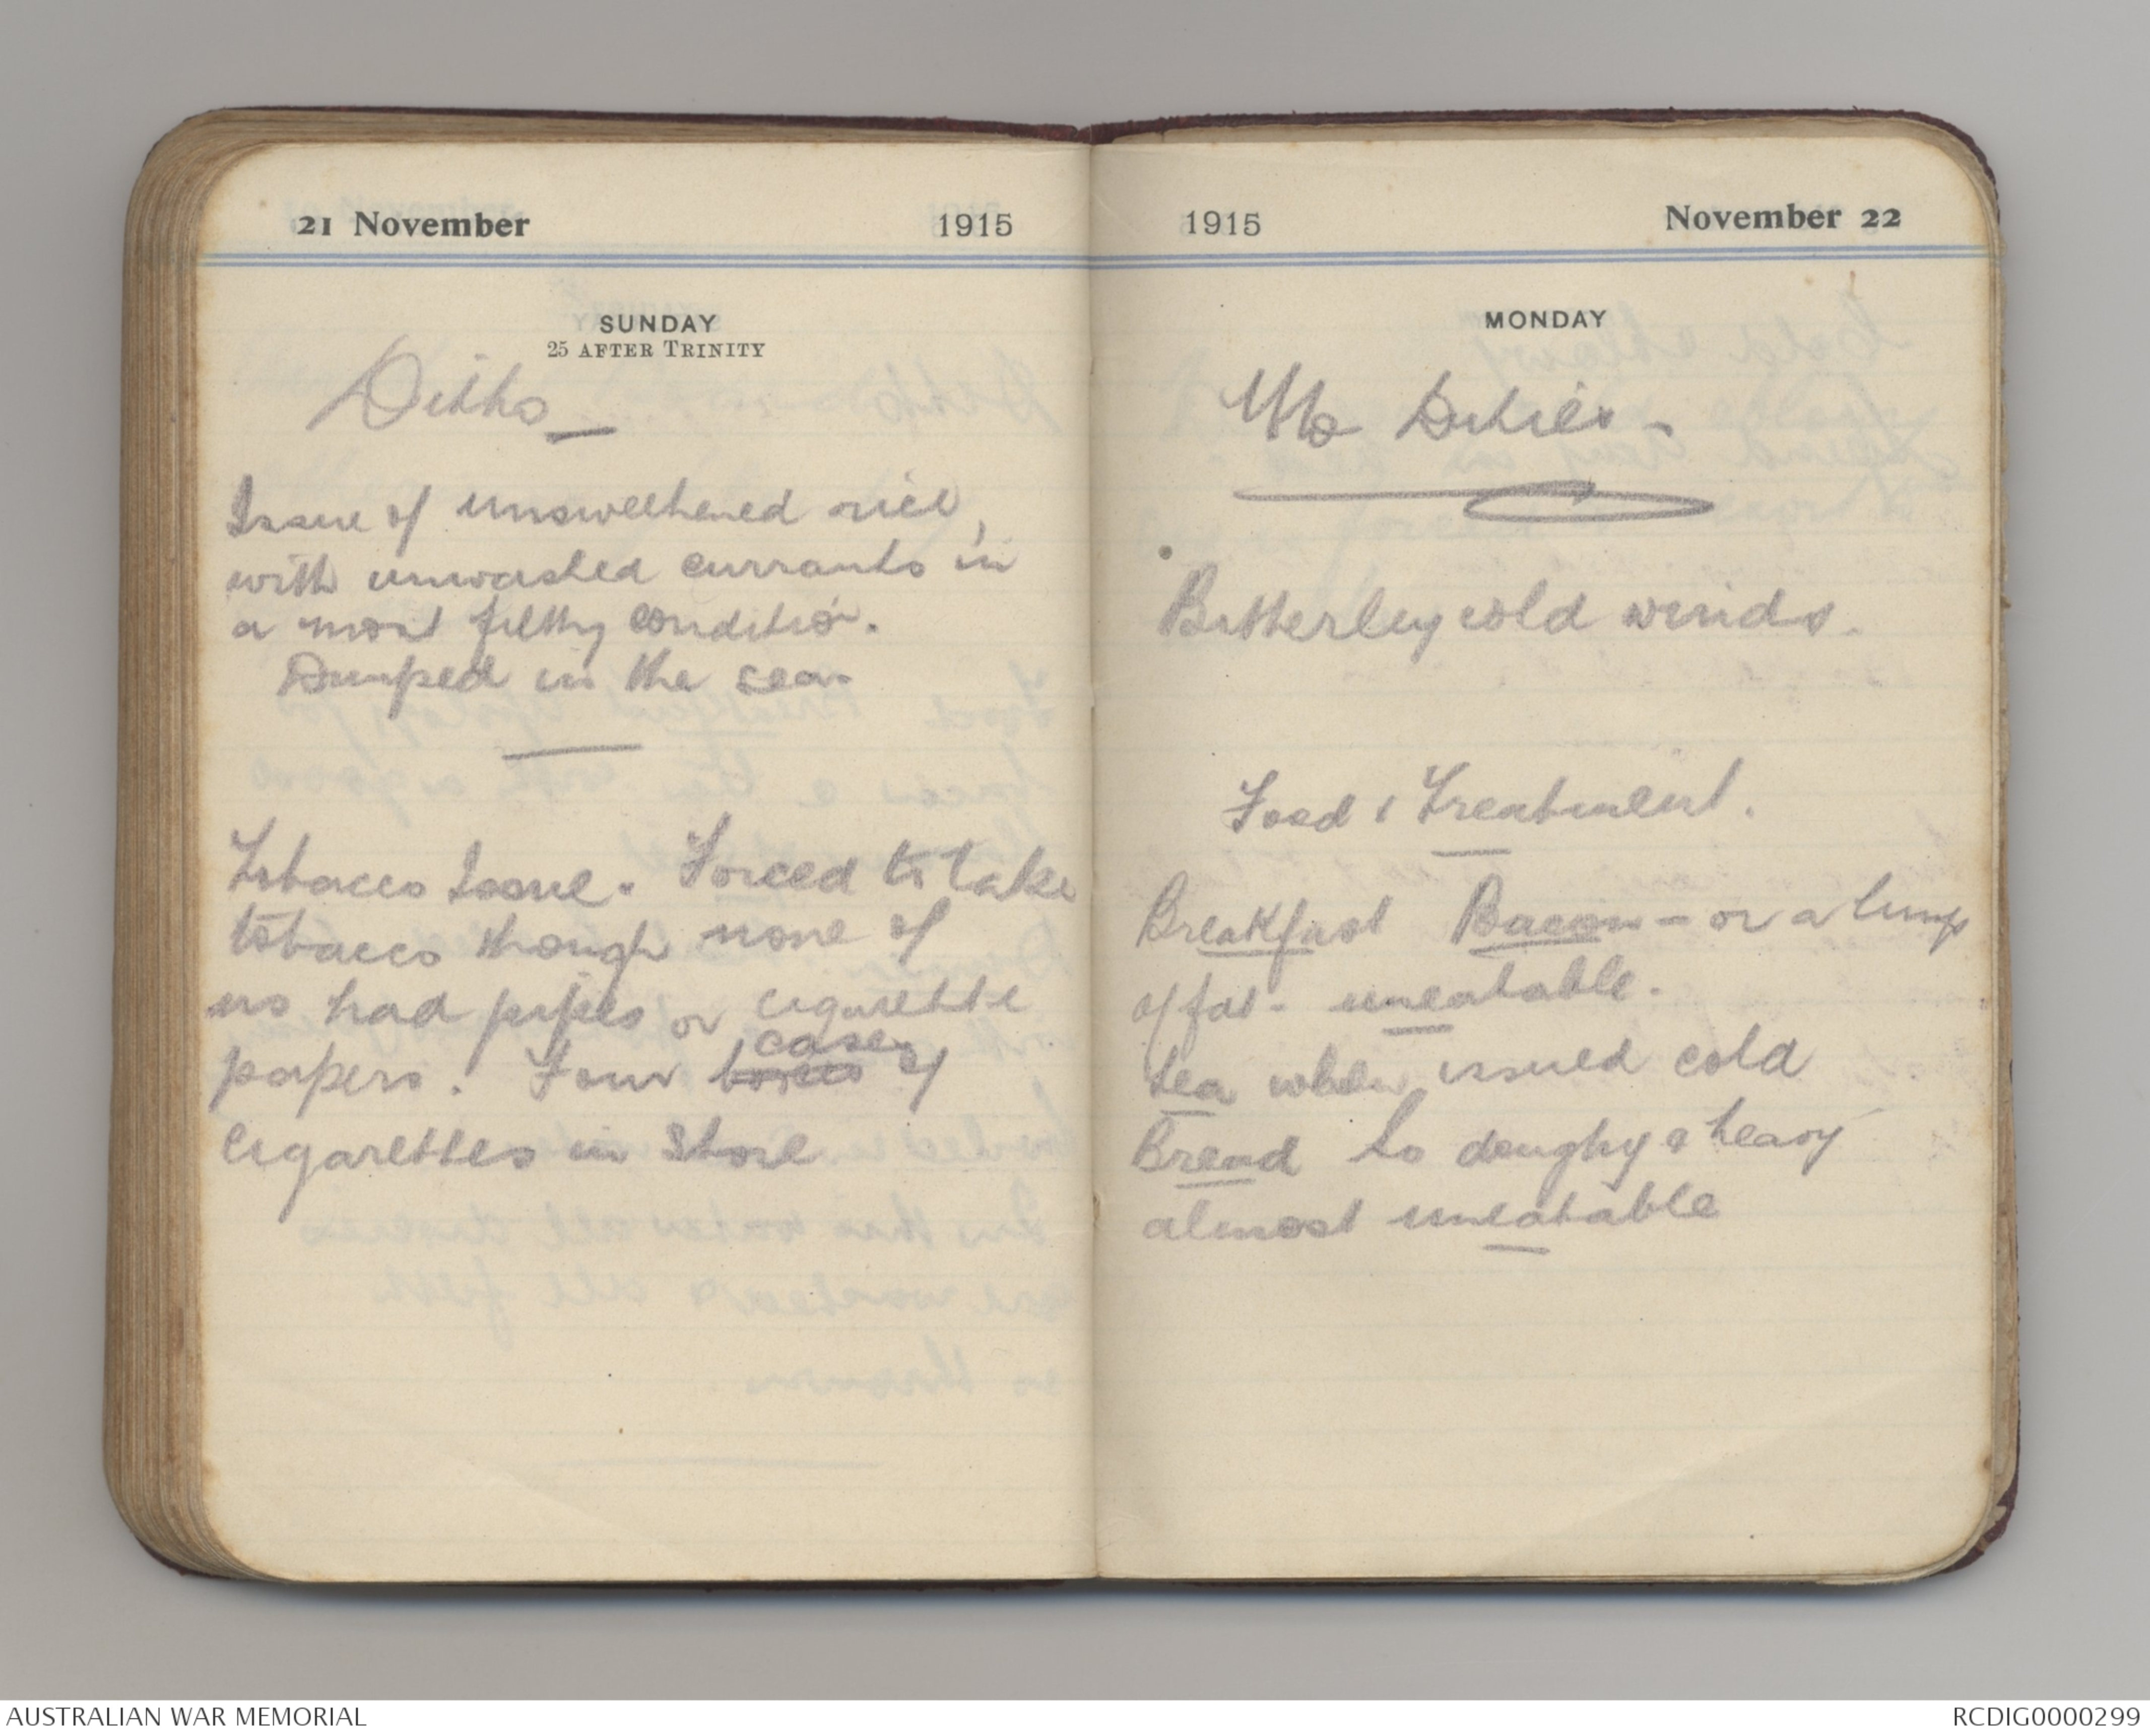 21 November 1915
SUNDAY
25 AFTER TRINITY
Ditto
Issue of unsweetened rice,
with unwashed currants in
a most filthy condition.
Dumped in the sea.
Tobacco Issue. Forced to take
tobacco though none of
us had pipes or cigarette
papers. Four boxes cases of
Cigarettes in Store
1915 November 22
MONDAY
No Duties -
Bitterley cold winds.
Food & Treatment.
Breakfast Bacon - or a lump
of fat - uneatable.
Tea when issued cold
Bread So doughy & heavy
almost uneatable
AUSTRALIAN WAR MEMORIAL
RCDIG0000299